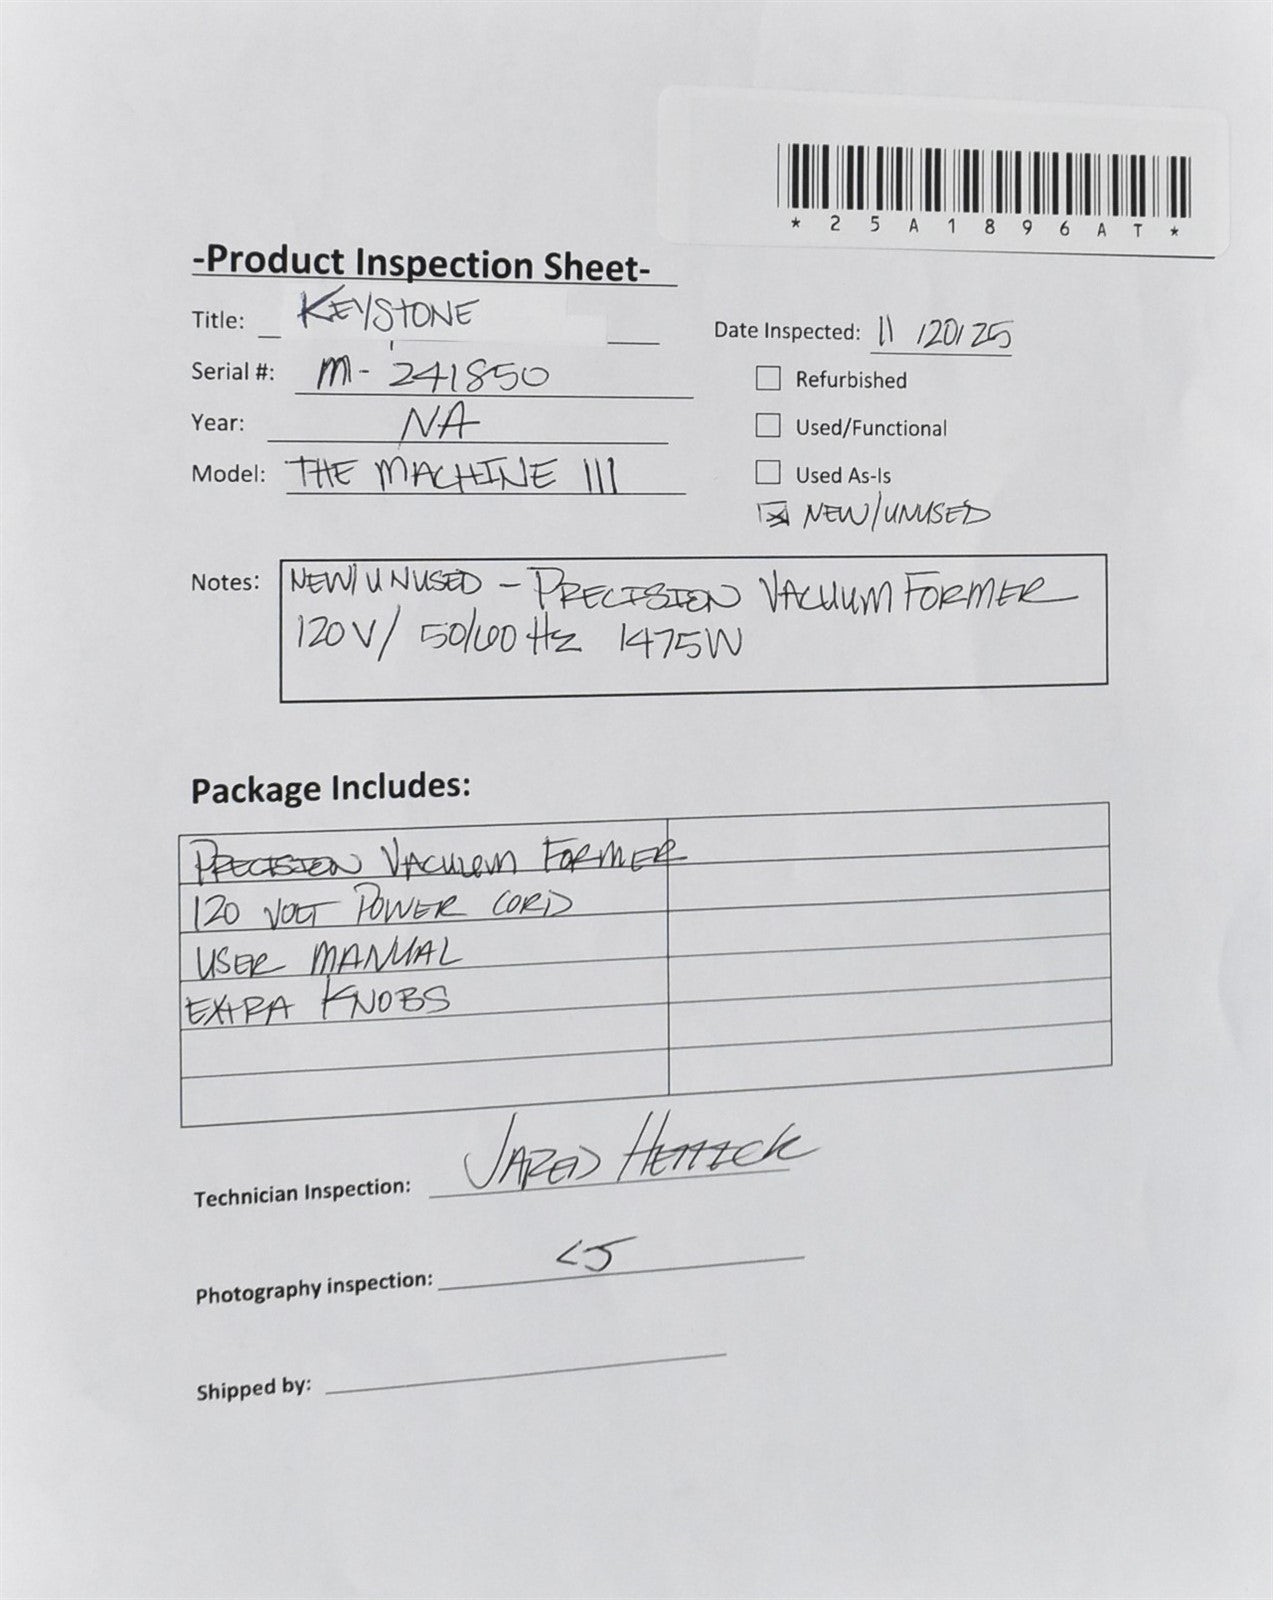 *25A1896AT*
-Product Inspection Sheet-
Title: KEYSTONE
Date Inspected: 11/20/25
Serial #: M-241850
Refurbished
Year: NA
Used/Functional
Model: THE MACHINE III
Used As-Is
NEW/UNUSED
Notes: NEW/UNUSED - PRECISION VACUUM FORMER
120V/ 50/60Hz 1475W
Package Includes:
PRECISION VACUUM FORMER
120 VOLT POWER CORD
USER MANUAL
EXTRA KNOBS
Technician Inspection: JARED
Photography inspection:
Shipped by: